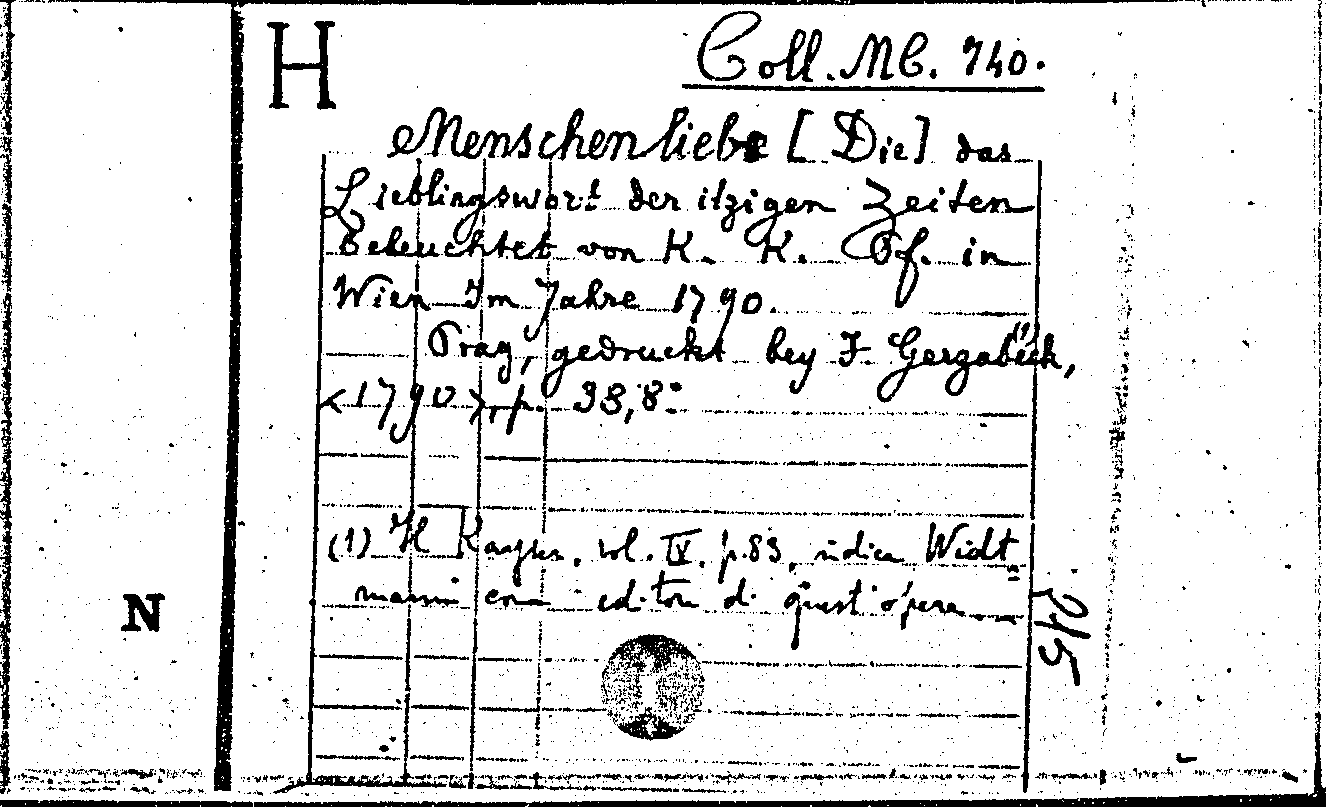 H
Coll. MC. 740.
Menschenliebe [Die] das
Lieblingswort der itzigen Zeiten
Beleuchtet von K. K. Of. in
Wien Im Jahre 1790.
Prag, gedruckt bey J. Gerzabeck,
<1790>, p. 93, 8:
(1) Il Kayser, vol. IV. p. 83, indica Widt=
mann come editore di quest'opera
245
N